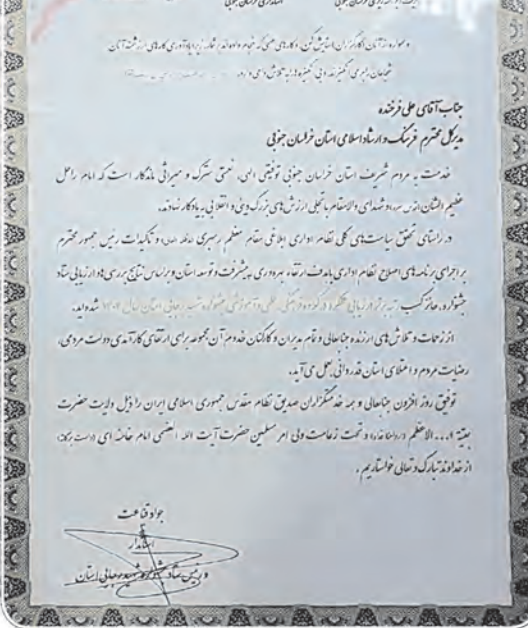 استانداری خراسان جنوبی
و همواره از آنان
جناب آقای علی فرخنده
مدیرکل محترم فرهنگ و ارشاد اسلامی استان خراسان جنوبی
خدمت به مردم شریف استان خراسان جنوبی توفیقی الهی، نعمتی سترگ و میراثی ماندگار است که امام راحل
عظیم الشان و شهدای والامقام با تجلی ارزش های بزرگ دینی و انقلابی به یادگار نهادند.
در راستای تحقق سیاست‌های کلی نظام اداری ابلاغی مقام معظم رهبری و تاکیدات رئیس جمهور محترم
بر اجرای برنامه های اصلاح نظام اداری با هدف ارتقاء بهره‌وری پیشرفت و توسعه استان و براساس نتایج بررسی ها و ارزیابی ستاد
جشنواره، حائز کسب شده اید.
از زحمات و تلاش های ارزنده جنابعالی و تمام مدیران و کارکنان خدوم آن مجموعه برای ارتقای کارآمدی دولت مردمی،
رضایت مردم و اعتلای استان قدردانی بعمل می آید.
توفیق روز افزون جنابعالی و همه خدمتگزاران صدیق نظام مقدس جمهوری اسلامی ایران را ذیل ولایت حضرت
بقیة ا... الاعظم و تحت زعامت ولی امر مسلمین حضرت آیت الله العظمی امام خامنه ای
از خداوند تبارک و تعالی خواستاریم.
جواد قناعت
استاندار
و رئیس ستاد جشنواره شهید رجایی استان